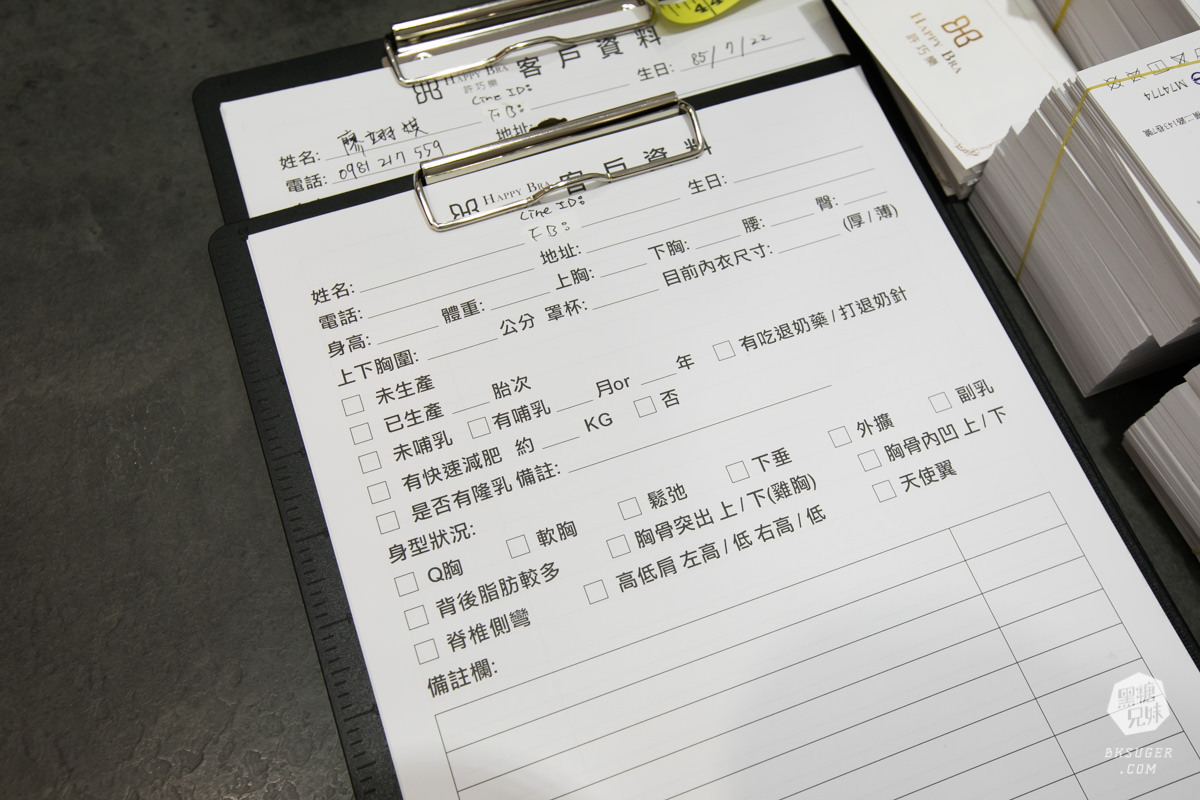 HAPPY BRA 客戶資料
許巧樂
Line ID:
FB:
生日: 85/7/22
姓名: 廖翊媖
地址:
電話: 0981 217 559
HAPPY BRA 客戶資料
Line ID:
FB:
生日:
姓名:
地址:
電話:
體重:
上胸:
下胸:
腰:
臀:
身高:
公分 罩杯:
目前內衣尺寸:
(厚/薄)
上下胸圍:
□ 未生產
□ 已生產
胎次
□ 未哺乳 □ 有哺乳
月or
年 □ 有吃退奶藥/打退奶針
□ 有快速減肥 約
KG □ 否
□ 是否有隆乳 備註:
身型狀況:
□ Q胸 □ 軟胸 □ 鬆弛 □ 下垂 □ 外擴 □ 副乳
□ 背後脂肪較多 □ 胸骨突出 上/下(雞胸) □ 胸骨內凹 上/下
□ 脊椎側彎 □ 高低肩 左高/低 右高/低 □ 天使翼
備註欄:
HAPPY BRA
許巧樂
M74774
黑糖兄妹
BKSUGER
.COM